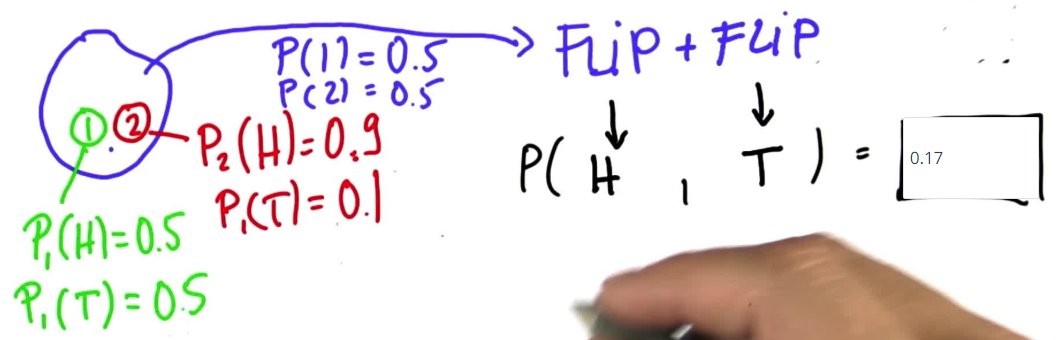 P(1) = 0.5
P(2) = 0.5
FLiP + FLiP
1
2
P₂(H) = 0.9
P₁(T) = 0.1
P(H, T) = 0.17
P₁(H) = 0.5
P₁(T) = 0.5